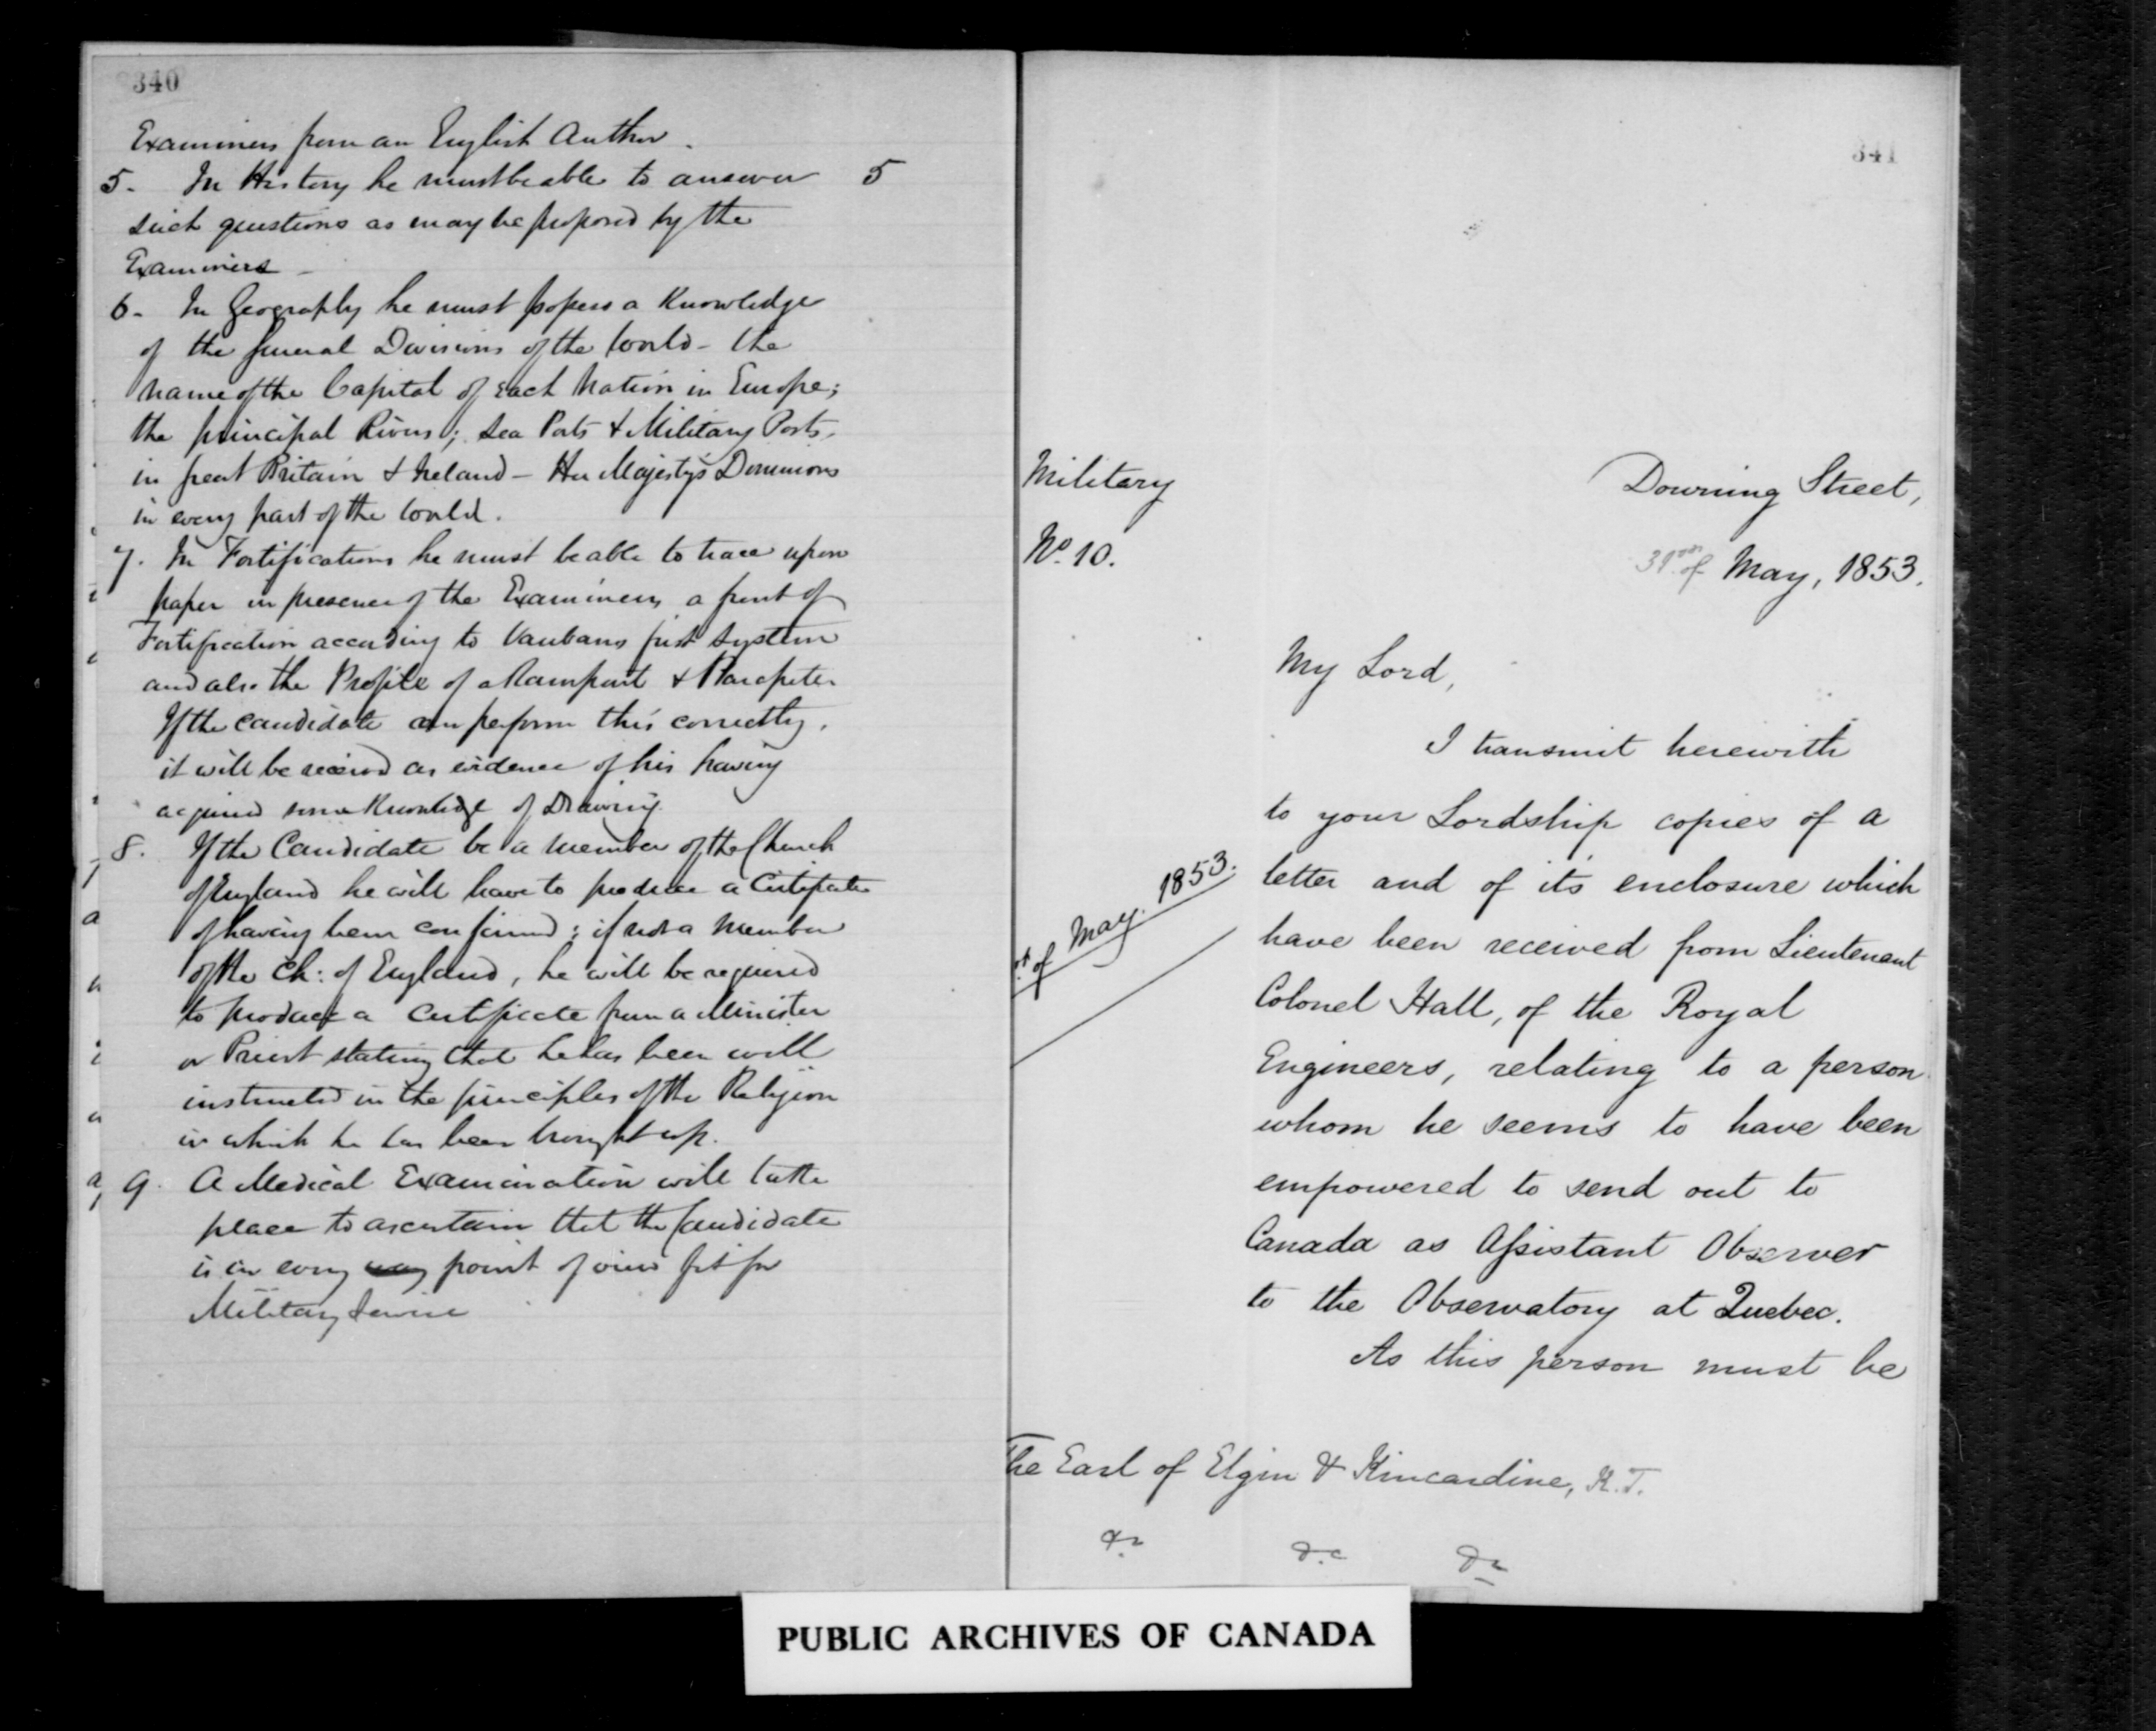 340
Examiners from an English Author.
5. In History he must be able to answer 5
such questions as may be proposed by the
Examiners
6. In Geography he must possess a Knowledge
of the general Divisions of the World - the
name of the Capital of each Nation in Europe;
the principal Rivers; Sea Ports & Military Ports,
in great Britain & Ireland - Her Majesty's Dominions
in every part of the World.
7. In Fortifications he must be able to trace upon
paper in presence of the Examiners a front of
Fortification according to Vaubans first System
and also the Profile of a Rampart & Parapet.
If the candidate can perform this correctly,
it will be received as evidence of his having
acquired some Knowledge of Drawing.
8. If the Candidate be a member of the Church
of England he will have to produce a Certificate
of having been confirmed; if not a Member
of the Ch: of England, he will be required
to produce a Certificate from a Minister
or Priest stating that he has been well
instructed in the principles of the Religion
in which he has been brought up.
9. A Medical Examination will take
place to ascertain that the Candidate
is in every way point of view fit for
Military Service
341
Military
Downing Street,
No. 10.
31st of May, 1853.
My Lord,
I transmit herewith
to your Lordship copies of a
of May. 1853.
letter and of its enclosure which
have been received from Lieutenant
Colonel Hall, of the Royal
Engineers, relating to a person
whom he seems to have been
empowered to send out to
Canada as Assistant Observer
to the Observatory at Quebec.
As this person must be
The Earl of Elgin & Kincardine, K.T.
&c &c &c
PUBLIC ARCHIVES OF CANADA